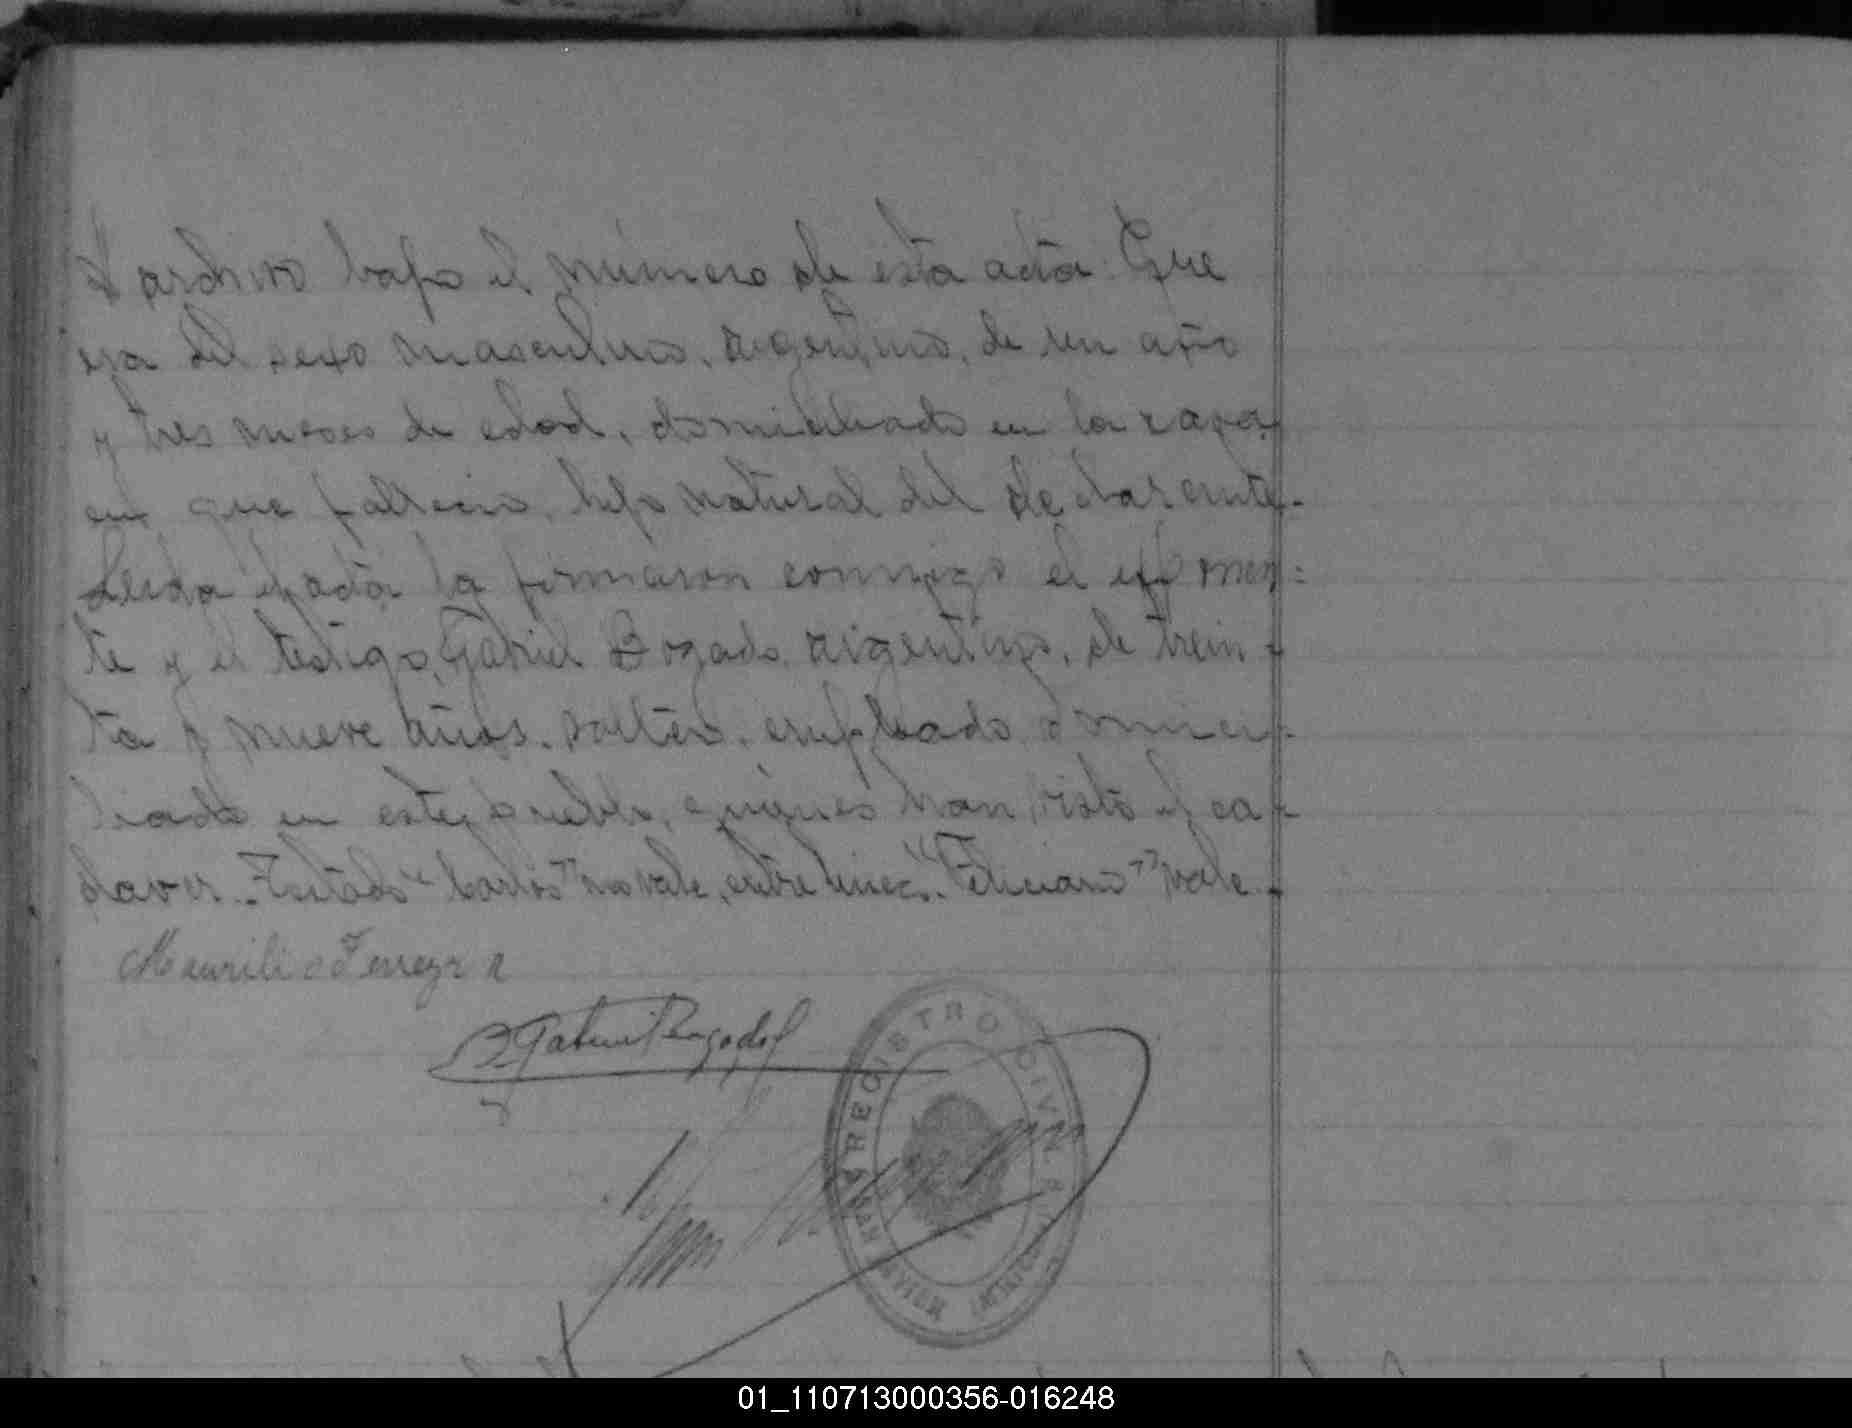 archivo bajo el número de esta acta. Que
era del sexo masculino, argentino, de un año
y tres meses de edad, domiciliado en la casa
en que falleció, hijo natural del declarante.
Leida el acta la firmaron conmigo el exponen=
te y el testigo, Gabriel Bogado, argentino, de trein-
ta y nueve años, soltero, empleado, domici-
liado en este pueblo, quienes han visto el ca-
daver. Testado "Carlos" no vale, entre lineas "Feliciano" vale.
Maurilio Ferreyra
Gabriel Bogado
REGISTRO CIVIL
01_110713000356-016248